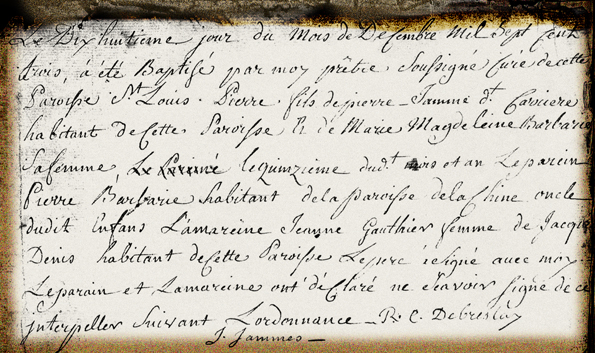 Le Dixhuitieme jour du Mois de Decembre Mil Sept Cent
trois, à été Baptisé par moy prêbre Soussigné Curé de cette
Paroisse St Louis. Pierre. fils de pierre Jamme dt. Carriere
habitant de Cette Paroisse & de Marie Magdeleine Barbarie
Safemme, lequinzieme dudt. mois et an Leparein
Pierre Barbarie habitant delaparoisse delaChine oncle
dudit Enfans L'amareine Jeanne Gauthier femme de Jacque
Denis habitant deCette Paroisse Lepere à signé avec moy
Leparain et Lamareine ont déClaré ne sçavoir signé de ce
interpeller Suivant Lordonnance R. C. Debreslay
J. Jammes